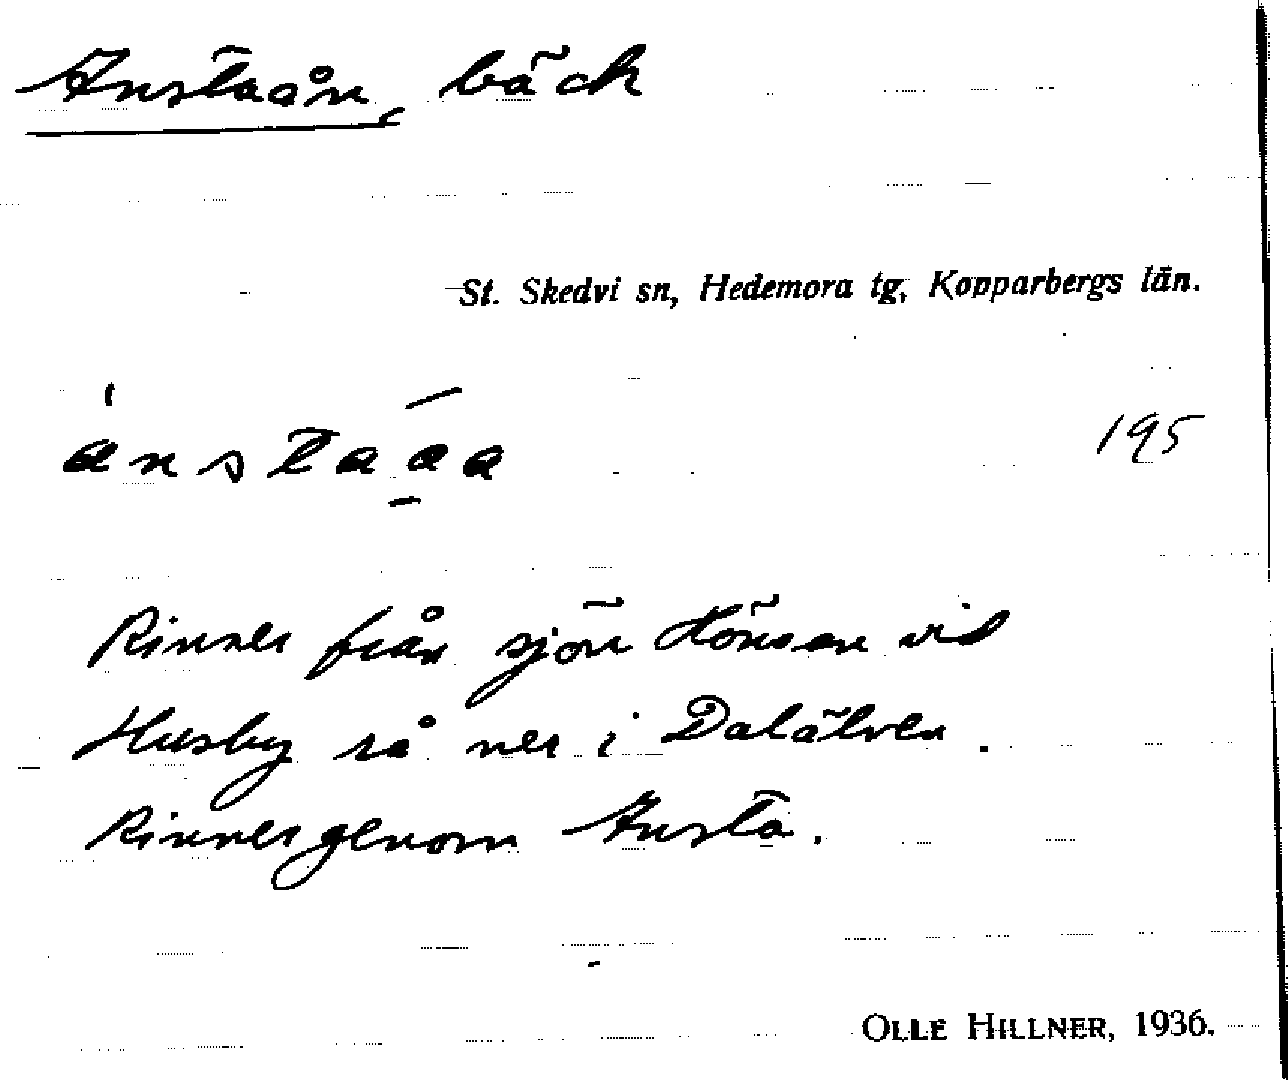 Anstaån, bäck
St. Skedvi sn, Hedemora tg, Kopparbergs län.
ánstaa̠a
195
Rinner från sjön Hönsan vid
Husby rå ner i Dalälven.
Rinner genom Ansta.
OLLE HILLNER, 1936.